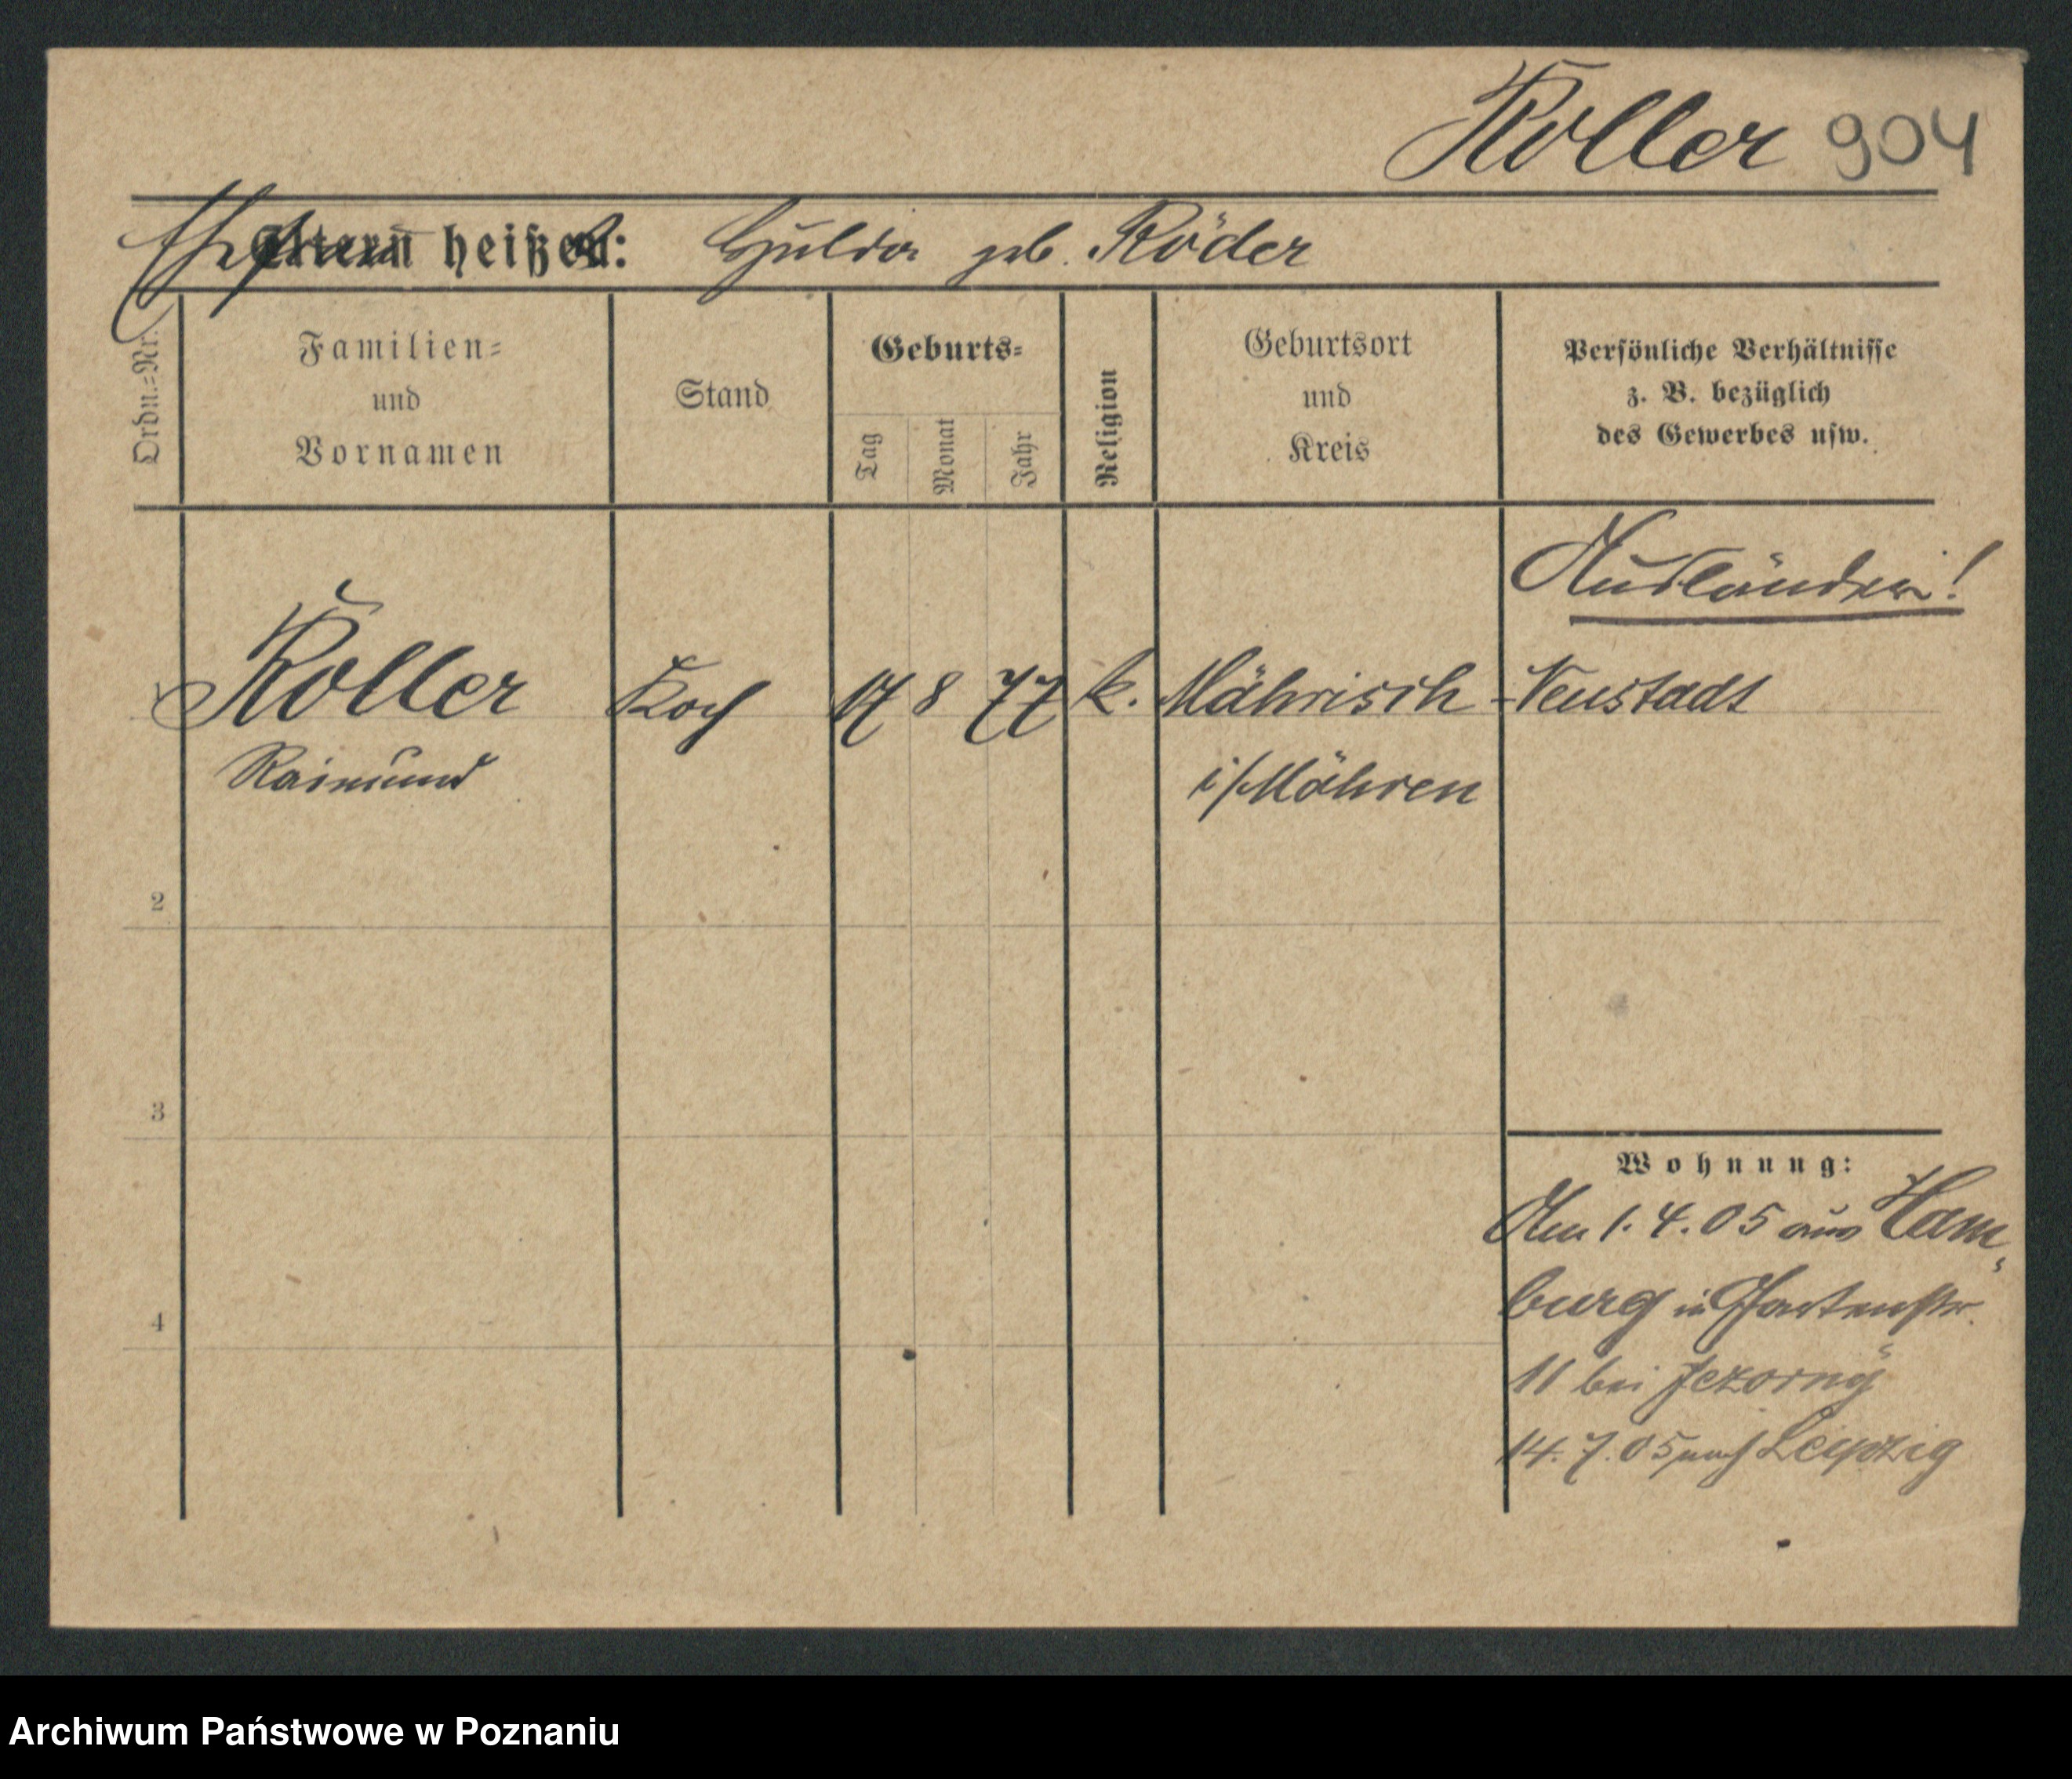 Koller 904
Ehefrau heißt: Hulda geb. Röder
Ordn.-Nr.
Familien-
und
Vornamen
Stand
Geburts-
Tag
Monat
Jahr
Religion
Geburtsort
und
Kreis
Persönliche Verhältnisse
z. B. bezüglich
des Gewerbes usw.
Ausländer!
1 Koller Koch 17 8 77 k. Mährisch-Neustadt
Raimund i/Mähren
2
3
4
Wohnung:
Am 1.4.05 aus Ham-
burg in Gartenstr.
11 bei Jezorny
14.7.05 nach Leipzig
Archiwum Państwowe w Poznaniu